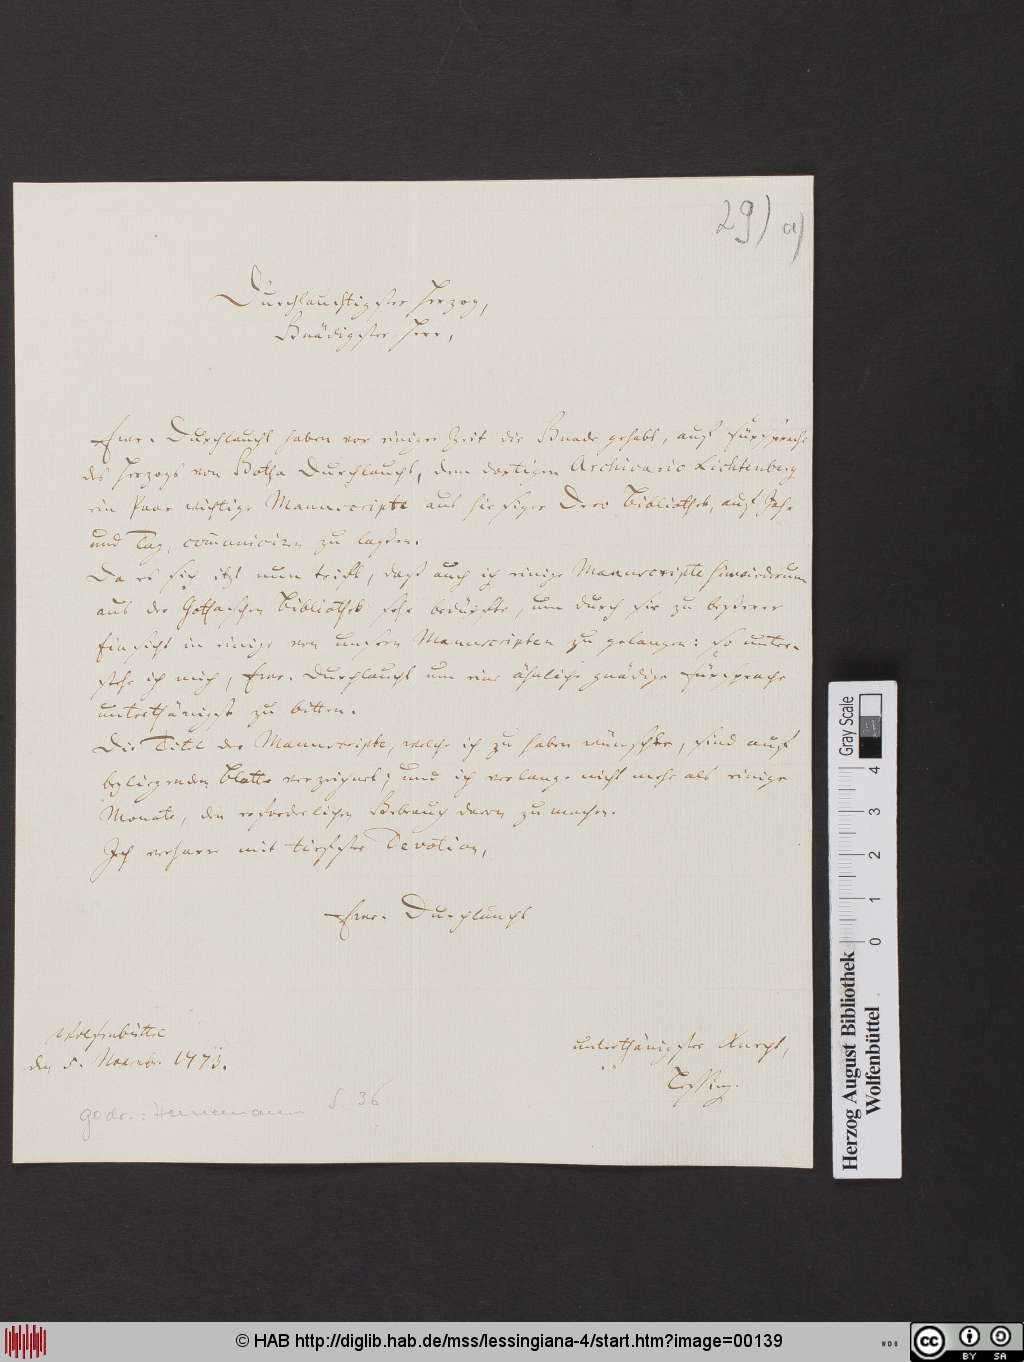 29) a)
Durchlauchtigster Herzog,
Gnädigster Herr,
Ewr. Durchlaucht haben vor einiger Zeit die Gnade gehabt, auf Fürsprache
des Herzogs von Gotha Durchlaucht, dem dortigen Archivario Lichtenberg
ein Paar wichtige Manuscripte aus hiesiger Dero Bibliothek, auf Jahr
und Tag, communiciren zu lassen.
Da es sich itzt nun trift, daß auch ich einige Manuscripte hinwiederum
aus der Gothaischen Bibliothek sehr bedürfte, um durch sie zu besserer
Einsicht in einige von unsern Manuscripten zu gelangen: so unter-
stehe ich mich, Ewr. Durchlaucht um eine ähnliche gnädige Fürsprache
unterthänigst zu bitten.
Die Titel der Manuscripte, welche ich zu haben wünschte, sind auf
beyliegendem Blatte verzeichnet; und ich verlange nicht mehr als einige
Monate, den erforderlichen Gebrauch davon zu machen.
Ich verharre mit tiefster Devotion,
Ewr. Durchlaucht
Wolfenbüttel
den 5. Novembr. 1773.
unterthänigster Knecht,
Lessing.
gedr.: Heinemann S. 36
Gray Scale
0 1 2 3 4
Herzog August Bibliothek
Wolfenbüttel
© HAB http://diglib.hab.de/mss/lessingiana-4/start.htm?image=00139
WDB
cc BY SA